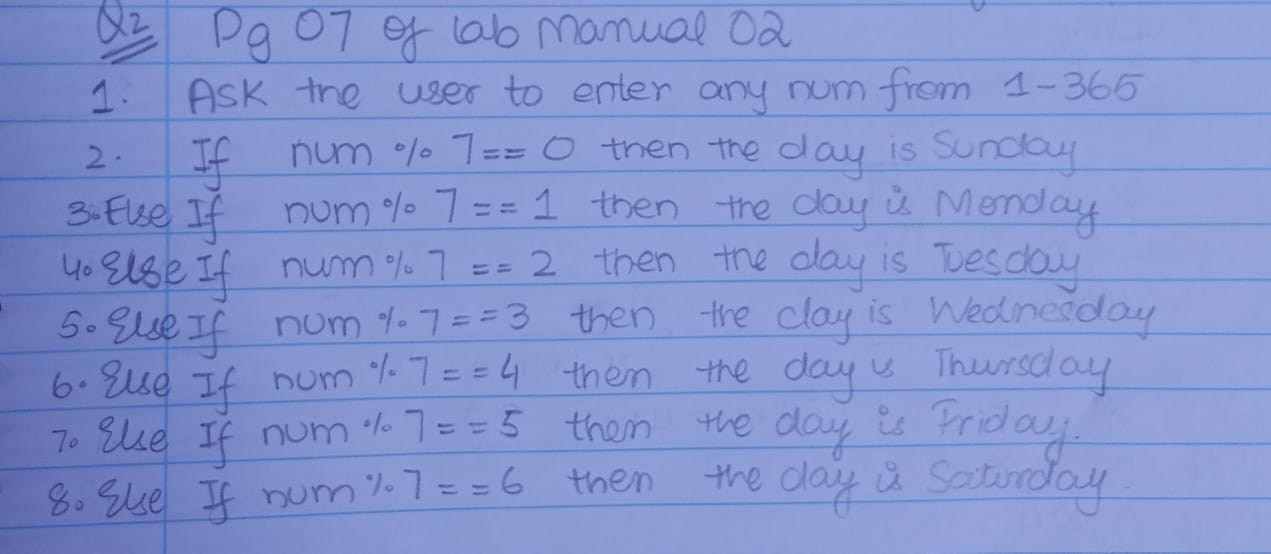 Q2 Pg 07 of lab manual 02
1. ASK the user to enter any num from 1-365
2. If num % 7 == 0 then the day is Sunday
3. Else If num % 7 == 1 then the day is Monday
4. Else If num % 7 == 2 then the day is Tuesday
5. Else If num % 7 == 3 then the day is Wednesday
6. Else If num % 7 == 4 then the day is Thursday
7. Else If num % 7 == 5 then the day is Friday.
8. Else If num % 7 == 6 then the day is Saturday.